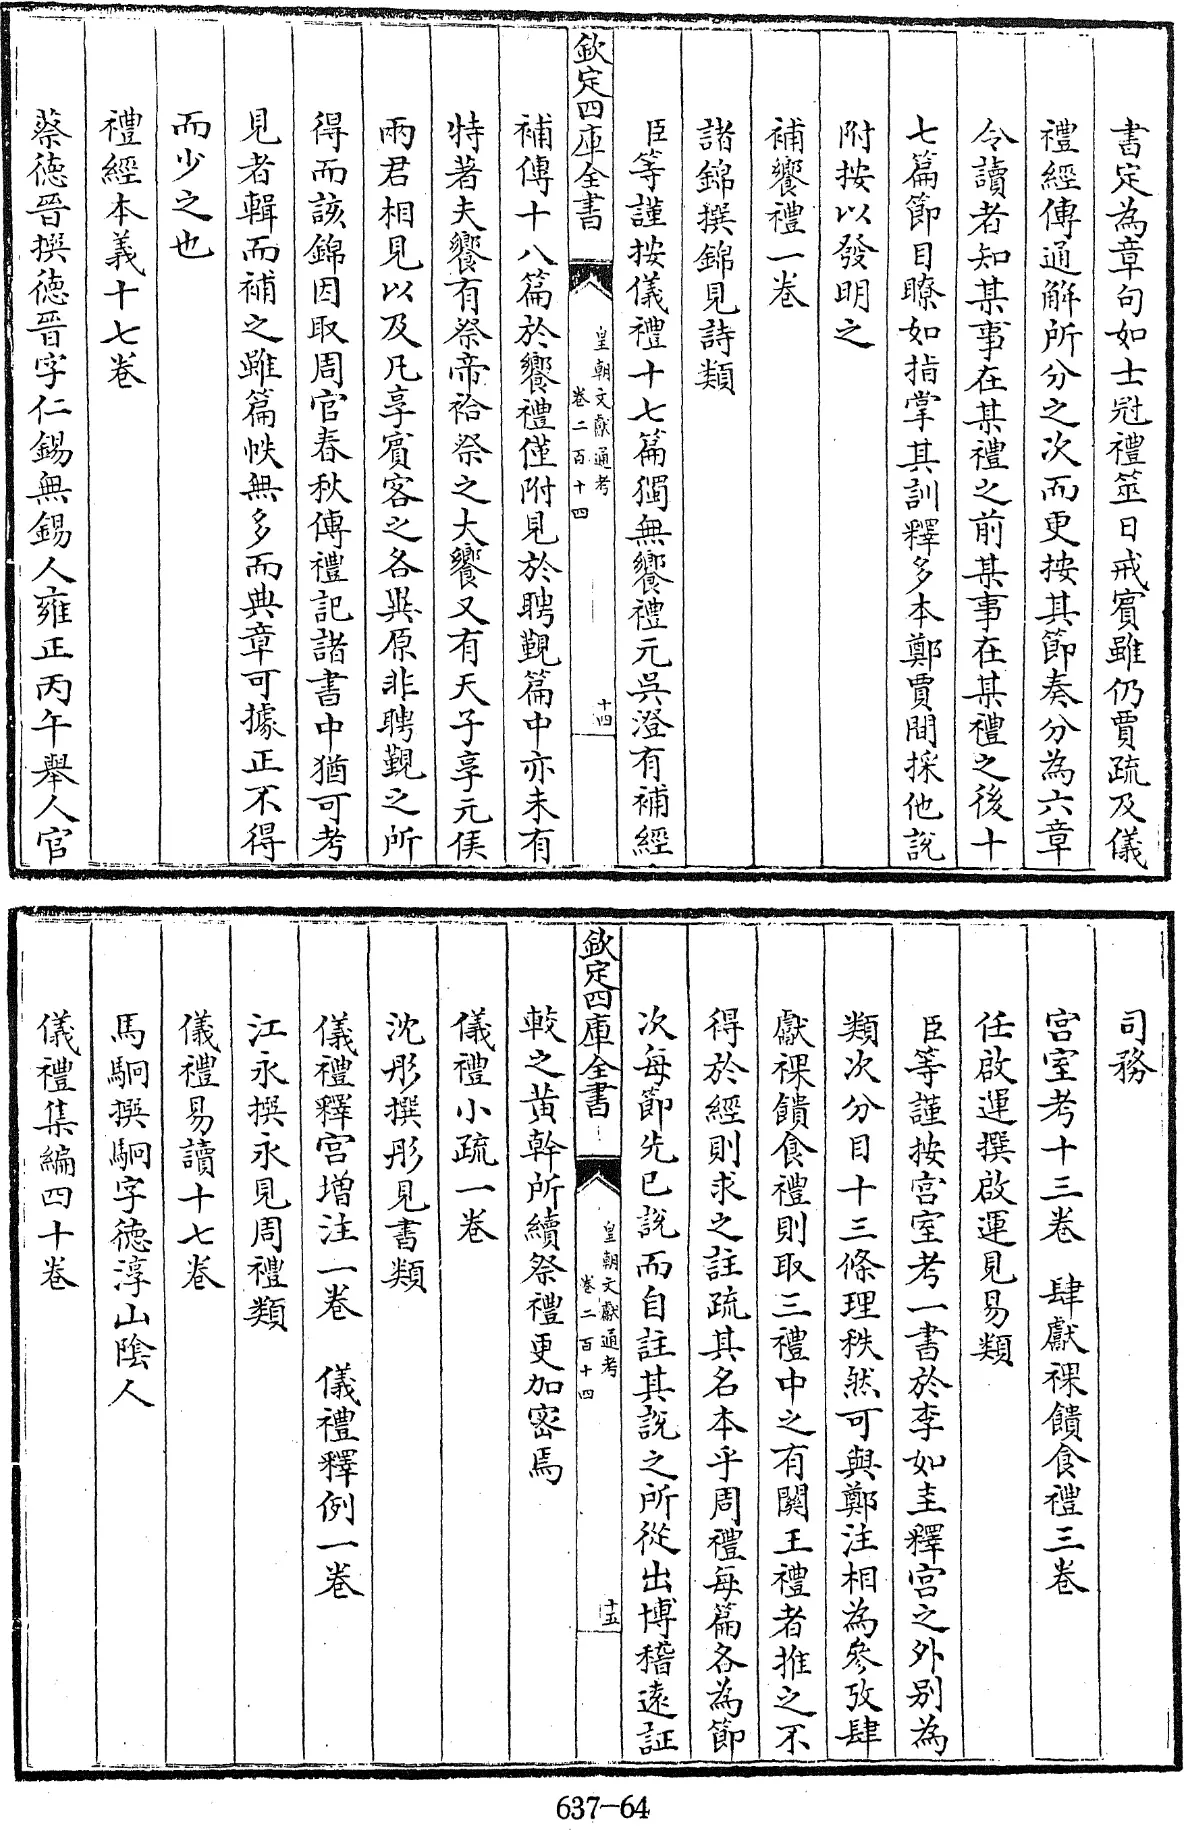 書定為章句如士冠禮筮日戒賓雖仍賈疏及儀
禮經傳通解所分之次而更按其節奏分為六章
令讀者知某事在某禮之前某事在某禮之後十
七篇節目瞭如指掌其訓釋多本鄭賈間採他說
附按以發明之
補饗禮一卷
諸錦撰錦見詩類
臣等謹按儀禮十七篇獨無饗禮元吳澄有補經
欽定四庫全書
皇朝文獻通考
卷二百十四
十四
補傳十八篇於饗禮僅附見於聘覲篇中亦未有
特著夫饗有祭帝祫祭之大饗又有天子享元侯
兩君相見以及凡享賓客之各異原非聘覲之所
得而該錦因取周官春秋傳禮記諸書中猶可考
見者輯而補之雖篇帙無多而典章可據正不得
而少之也
禮經本義十七卷
蔡德晉撰德晉字仁錫無錫人雍正丙午舉人官
司務
宮室考十三卷　肆獻祼饋食禮三卷
任啟運撰啟運見易類
臣等謹按宮室考一書於李如圭釋宮之外別為
類次分目十三條理秩然可與鄭注相為參攷肆
獻祼饋食禮則取三禮中之有關王禮者推之不
得於經則求之註疏其名本乎周禮每篇各為節
次每節先已說而自註其說之所從出博稽遠証
欽定四庫全書
皇朝文獻通考
卷二百十四
十五
較之黃幹所續祭禮更加密焉
儀禮小疏一卷
沈彤撰彤見書類
儀禮釋宮增注一卷　儀禮釋例一卷
江永撰永見周禮類
儀禮易讀十七卷
馬駉撰駉字德淳山陰人
儀禮集編四十卷
637-64